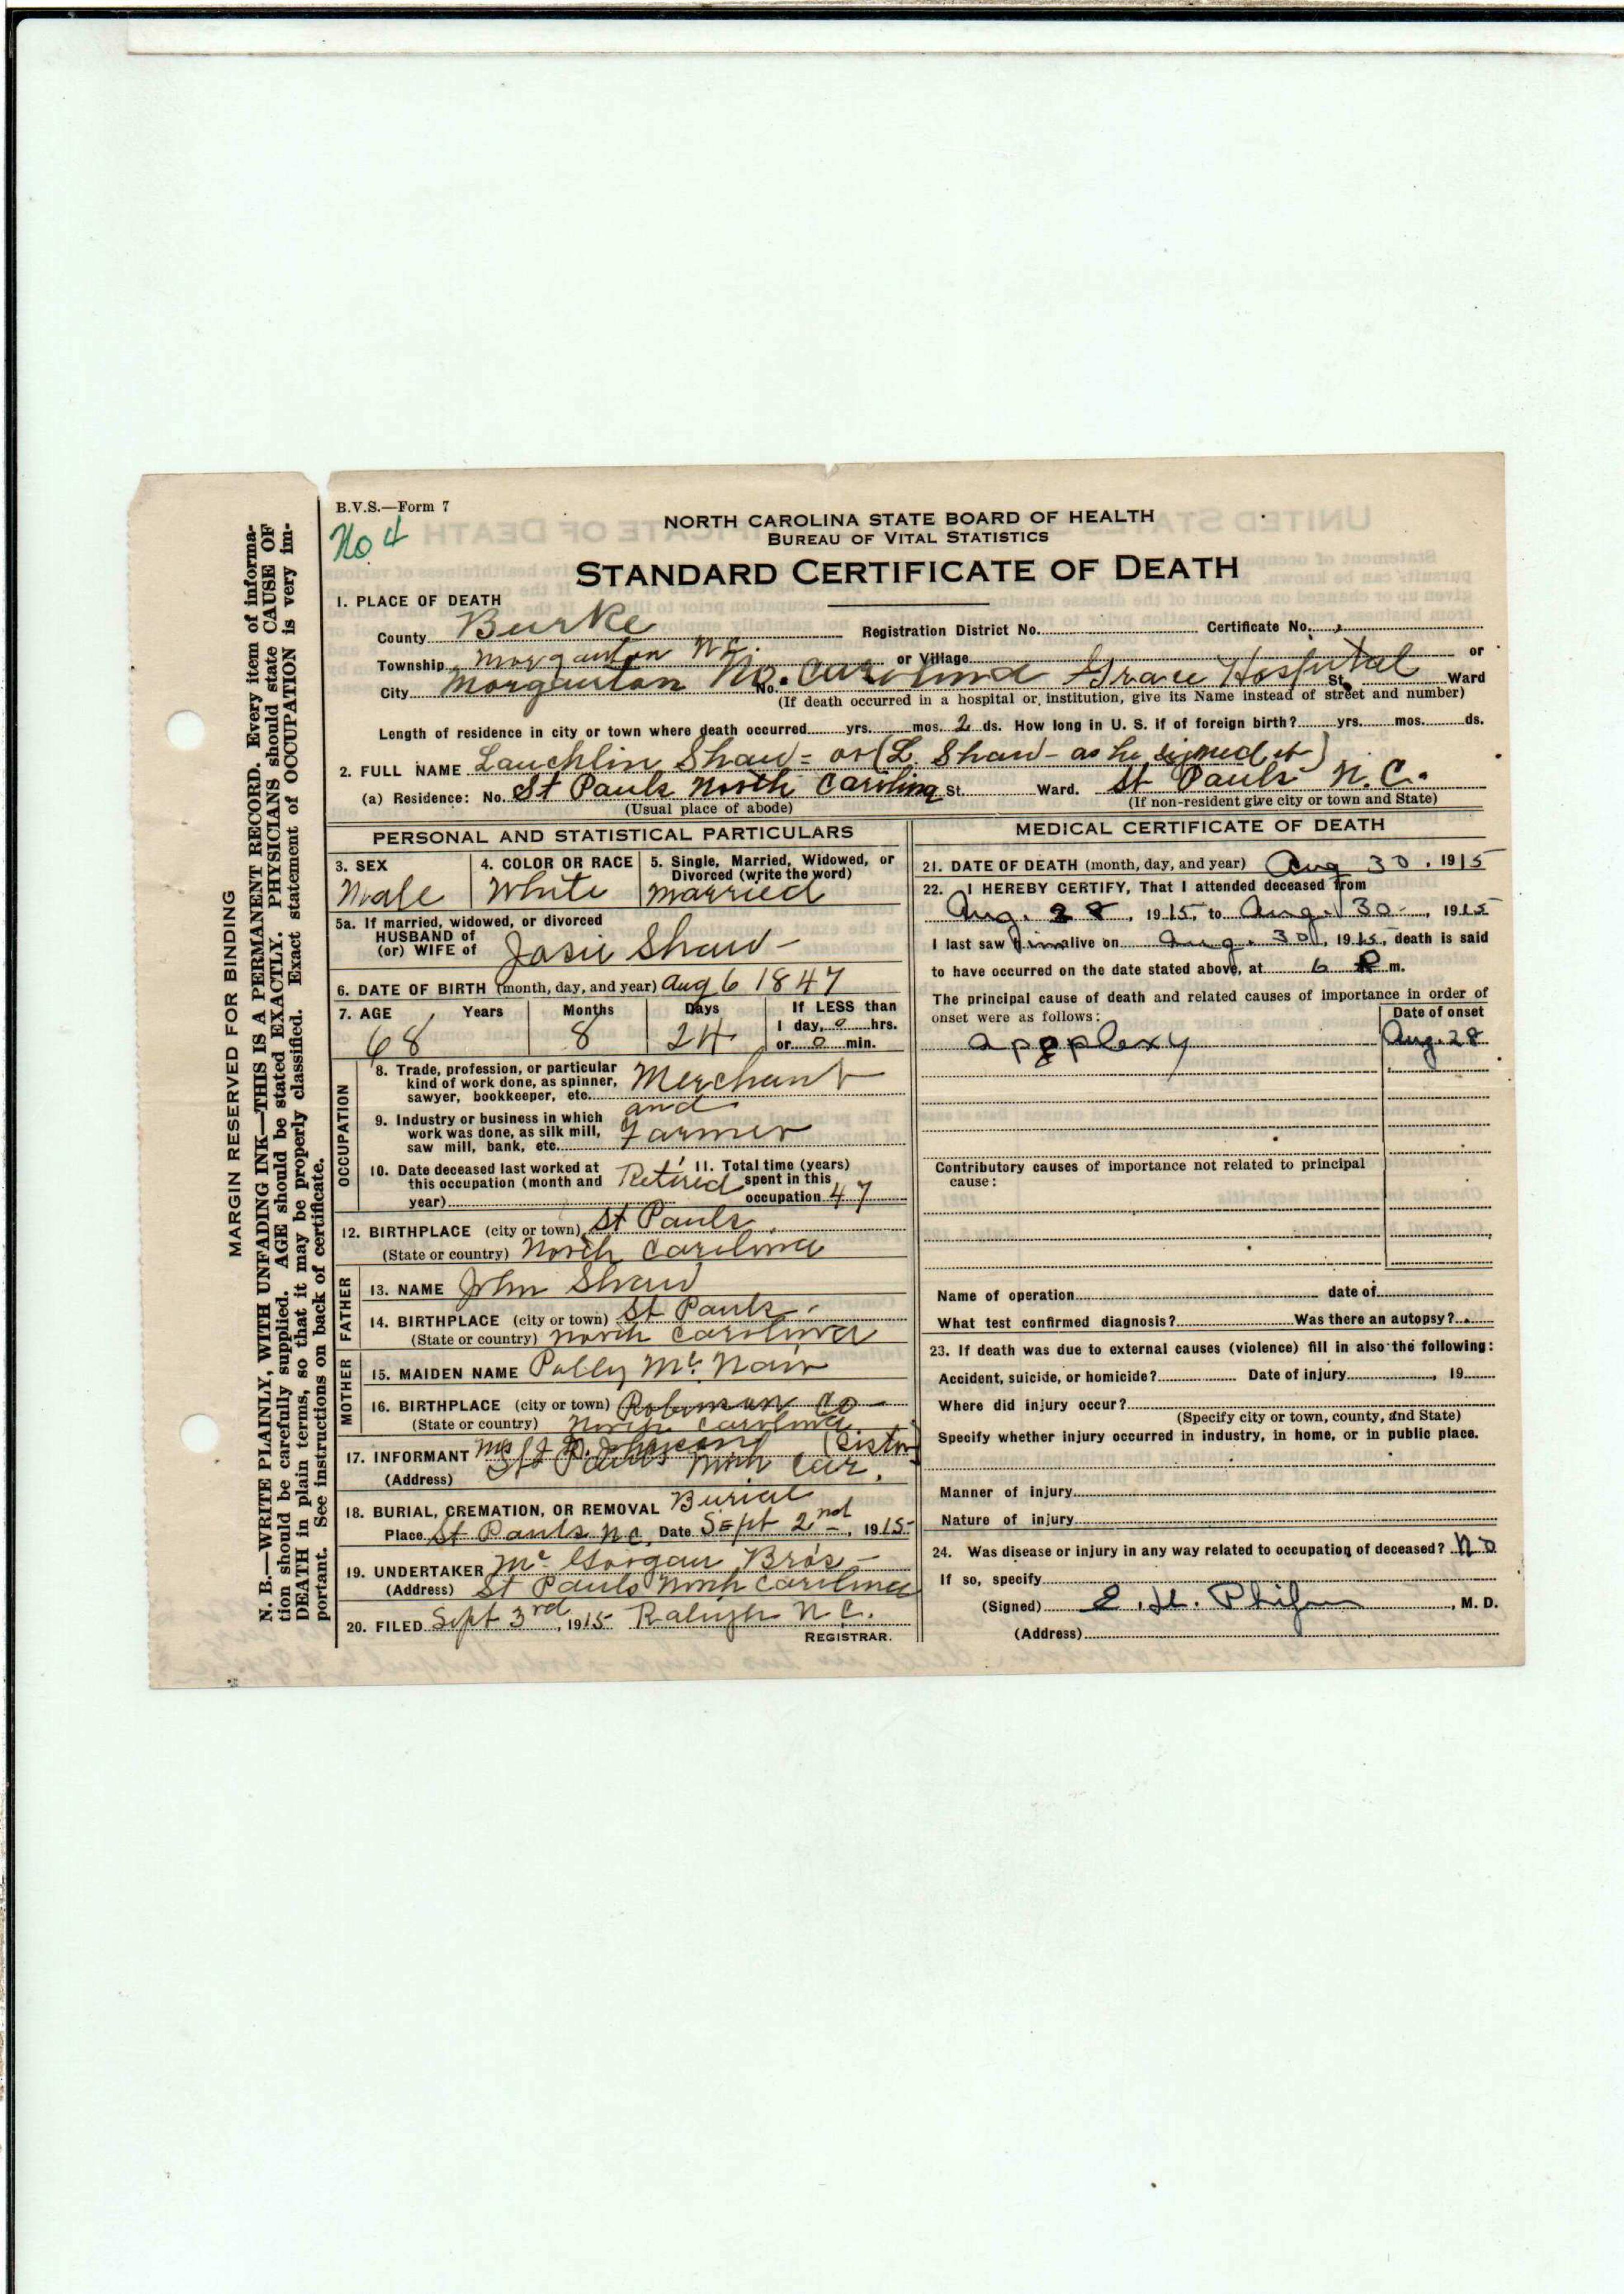 B.V.S.—Form 7
No 4
NORTH CAROLINA STATE BOARD OF HEALTH
BUREAU OF VITAL STATISTICS
STANDARD CERTIFICATE OF DEATH
1. PLACE OF DEATH
County Burke Registration District No. Certificate No.
Township Morganton N.C. or Village or
City Morganton No. Carolina No. Grace Hospital St. Ward
(If death occurred in a hospital or institution, give its Name instead of street and number)
Length of residence in city or town where death occurred yrs. mos. 2 ds. How long in U. S. if of foreign birth? yrs. mos. ds.
2. FULL NAME Lauchlin Shaw = or (L. Shaw - as he signed it)
(a) Residence: No. St Pauls North Carolina St. Ward. St Pauls N.C.
(Usual place of abode) (If non-resident give city or town and State)
PERSONAL AND STATISTICAL PARTICULARS
3. SEX 4. COLOR OR RACE 5. Single, Married, Widowed, or
Divorced (write the word)
Male White Married
5a. If married, widowed, or divorced
HUSBAND of
(or) WIFE of Josie Shaw -
6. DATE OF BIRTH (month, day, and year) Aug 6 1847
7. AGE Years Months Days If LESS than
1 day, 0 hrs.
68 8 24 or 0 min.
OCCUPATION
8. Trade, profession, or particular
kind of work done, as spinner, Merchant
sawyer, bookkeeper, etc.
and
9. Industry or business in which
work was done, as silk mill, Farmer
saw mill, bank, etc.
10. Date deceased last worked at Retired 11. Total time (years)
this occupation (month and spent in this
year) occupation 47
12. BIRTHPLACE (city or town) St Pauls
(State or country) North Carolina
FATHER
13. NAME John Shaw
14. BIRTHPLACE (city or town) St Pauls
(State or country) North Carolina
MOTHER
15. MAIDEN NAME Polly Mc Nair
16. BIRTHPLACE (city or town) Robeson Co
(State or country) North Carolina
17. INFORMANT Mrs (Sister)
(Address) St Pauls North Car.
18. BURIAL, CREMATION, OR REMOVAL Burial
Place St Pauls N.C. Date Sept 2nd, 1915
19. UNDERTAKER Mc Gorgan Bros -
(Address) St Pauls North Carolina
20. FILED Sept 3rd, 1915 Raleigh N.C.
REGISTRAR.
MEDICAL CERTIFICATE OF DEATH
21. DATE OF DEATH (month, day, and year) Aug 30, 1915
22. I HEREBY CERTIFY, That I attended deceased from
Aug. 28, 1915, to Aug. 30, 1915
I last saw him alive on Aug. 30, 1915, death is said
to have occurred on the date stated above, at 6 P m.
The principal cause of death and related causes of importance in order of
onset were as follows: Date of onset
apoplexy Aug. 28
Contributory causes of importance not related to principal
cause:
Name of operation date of
What test confirmed diagnosis? Was there an autopsy?
23. If death was due to external causes (violence) fill in also the following:
Accident, suicide, or homicide? Date of injury , 19
Where did injury occur?
(Specify city or town, county, and State)
Specify whether injury occurred in industry, in home, or in public place.
Manner of injury
Nature of injury
24. Was disease or injury in any way related to occupation of deceased? No
If so, specify
(Signed) E. H. Phifer, M. D.
(Address)
MARGIN RESERVED FOR BINDING
N. B.—WRITE PLAINLY, WITH UNFADING INK—THIS IS A PERMANENT RECORD. Every item of informa-
tion should be carefully supplied. AGE should be stated EXACTLY. PHYSICIANS should state CAUSE OF
DEATH in plain terms, so that it may be properly classified. Exact statement of OCCUPATION is very im-
portant. See instructions on back of certificate.